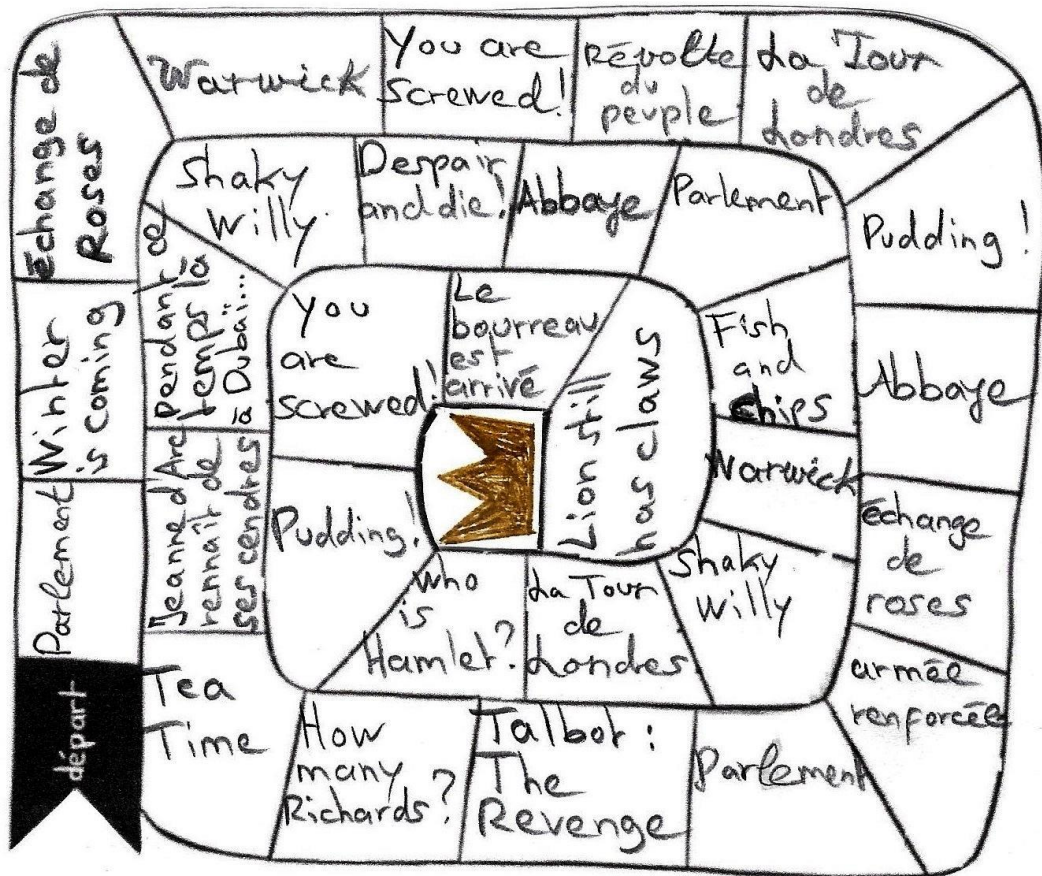 départ
Parlement
Winter
is coming
Échange de
Roses
Warwick
You are
Screwed!
Révolte
du
peuple
La Tour
de
Londres
Pudding !
Abbaye
Échange
de
roses
armée
renforcée
Parlement
Talbot :
The
Revenge
How
many
Richards ?
Tea
Time
Jeanne d'Arc
rennaît de
ses cendres
Pendant ce
temps là
à Dubaï...
Shaky
Willy
Despair
and die!
Abbaye
Parlement
Fish
and
chips
Warwick
Shaky
Willy
La Tour
de
Londres
Who
is
Hamlet?
Pudding!
You
are
screwed!
Le
bourreau
est
arrivé
Lion still
has claws